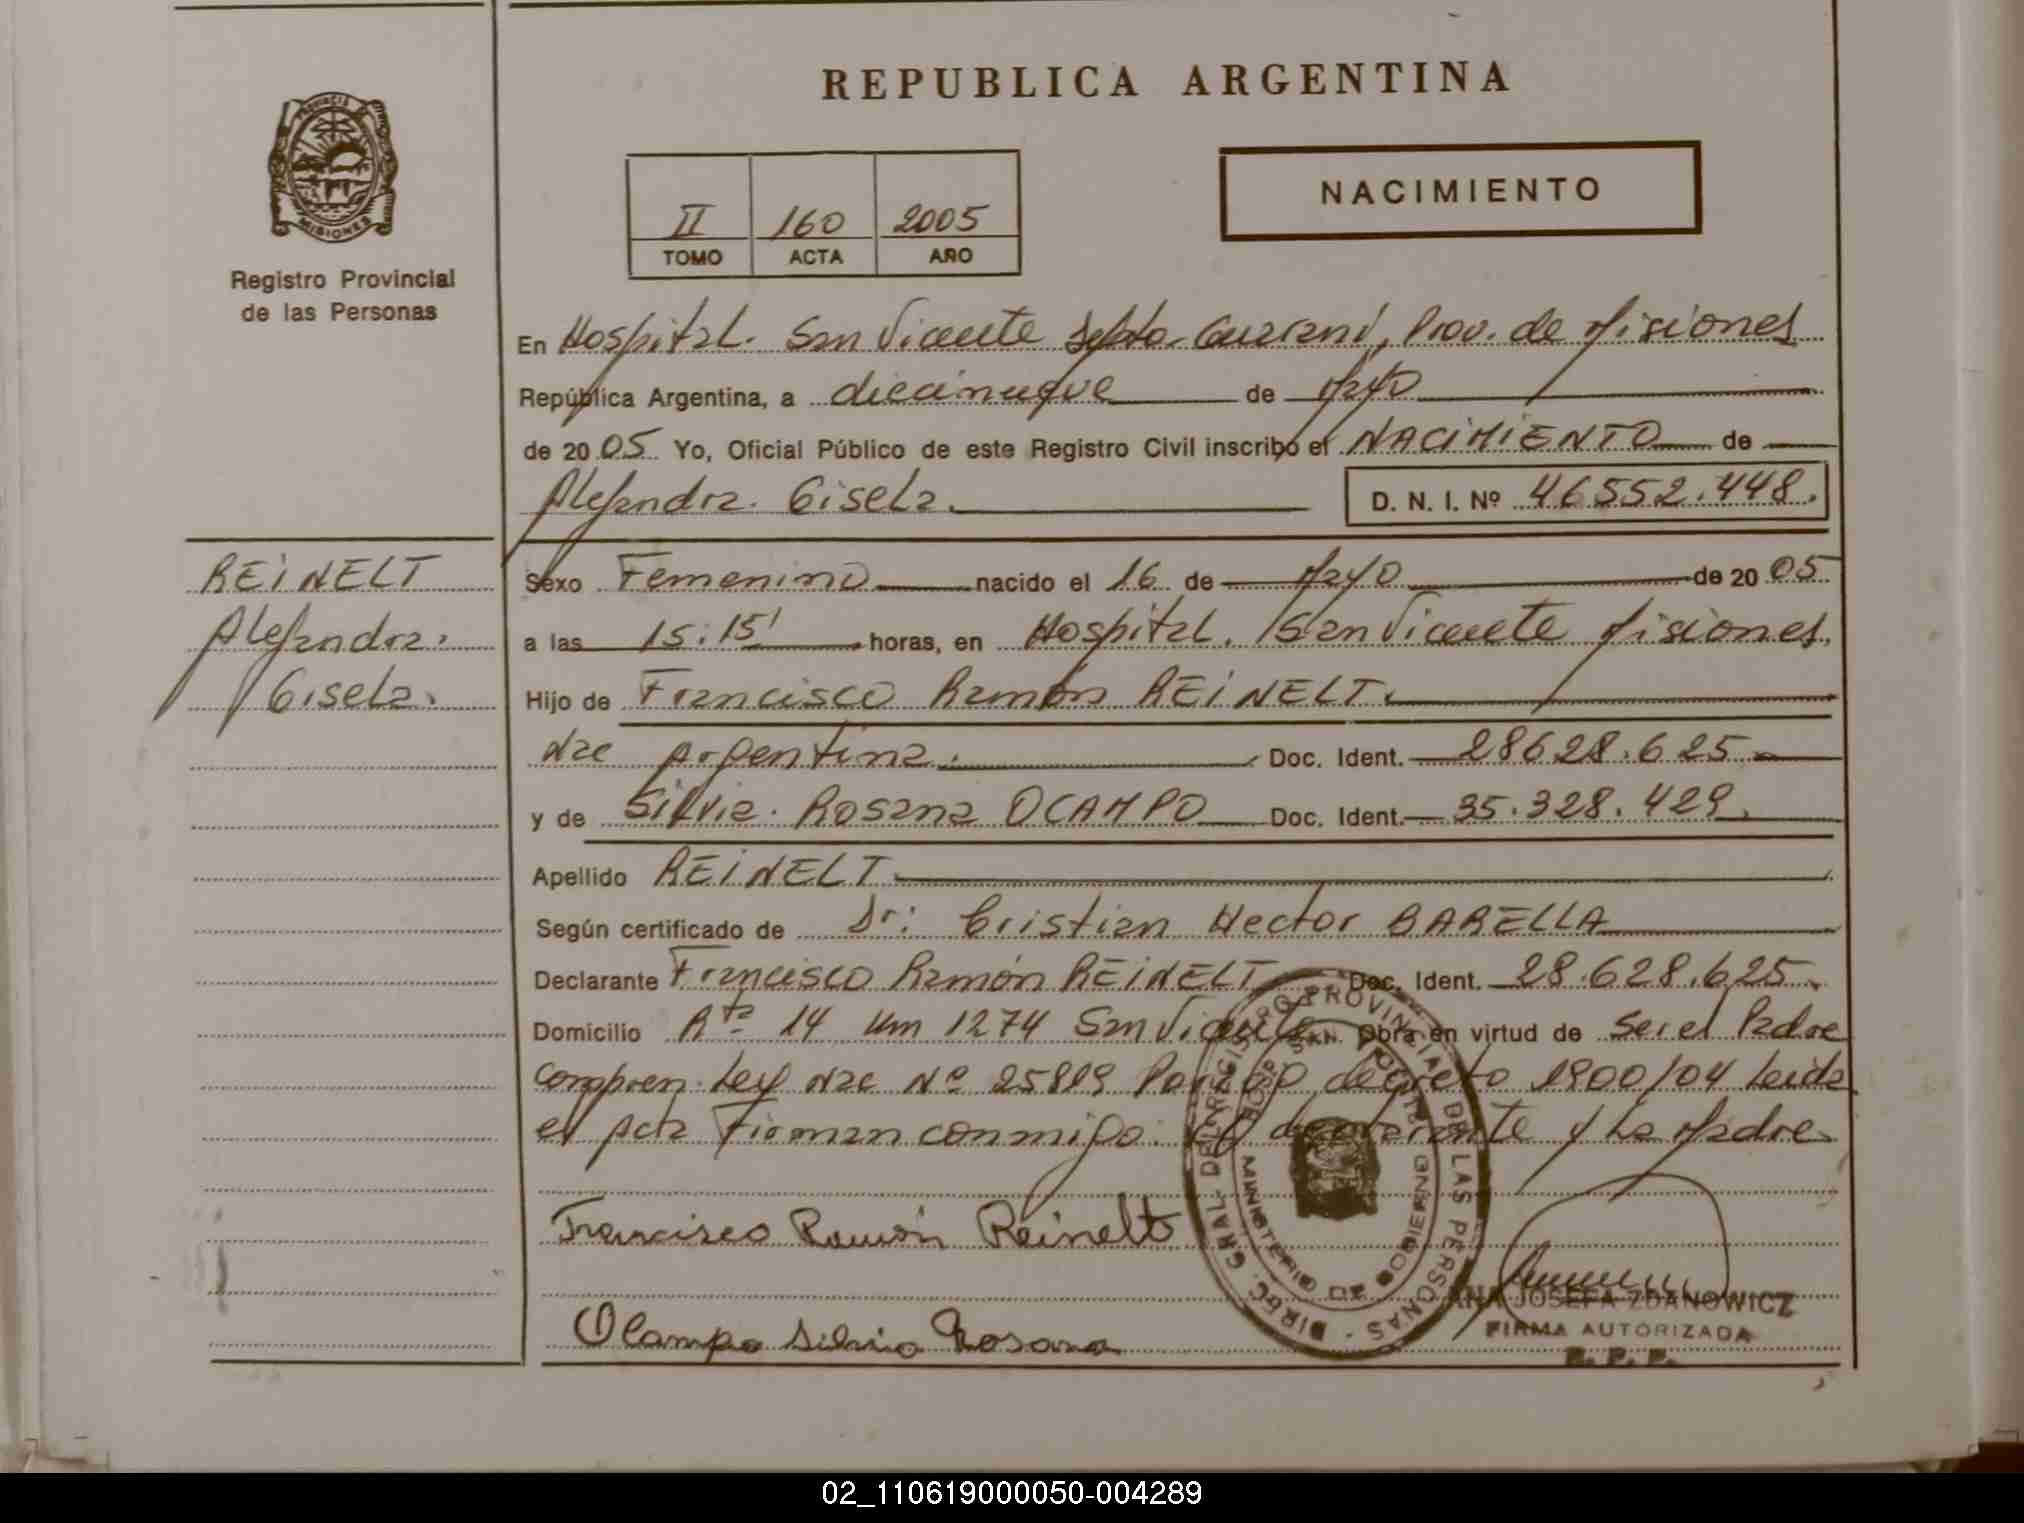 REPUBLICA ARGENTINA
PROVINCIA DE MISIONES
Registro Provincial
de las Personas
II 160 2005
TOMO ACTA AÑO
NACIMIENTO
En Hospital. San Vicente Depto. Guaraní, Prov. de Misiones
República Argentina, a diecinueve de Mayo
de 2005 Yo, Oficial Público de este Registro Civil inscribo el NACIMIENTO de
Alejandra. Gisela. D. N. I. Nº 46552.448.
REINELT
Alejandra.
Gisela.
Sexo Femenino nacido el 16 de Mayo de 2005
a las 15:15' horas, en Hospital. San Vicente Misiones.
Hijo de Francisco Ramón REINELT.
Nac Argentina. Doc. Ident. 28628.625
y de Silvia. Rosana OCAMPO Doc. Ident. 35.328.429.
Apellido REINELT
Según certificado de Dr: Cristian Hector BARELLA
Declarante Francisco Ramón REINELT Doc. Ident. 28.628.625.
Domicilio Rta 14 Km 1274 San Vicente Obra en virtud de Ser el Padre
Ley Nac Nº 25819 decreto 1900/04 Leida
el Acta Firman conmigo. el declarante y La Madre
Francisco Ramón Reinelt
Ocampo Silvia Rosana
DIREC. GRAL. DEL REGISTRO PROVINCIAL DE LAS PERSONAS
MINISTERIO DE GOBIERNO
ANA JOSEFA ZDANOWICZ
FIRMA AUTORIZADA
R. P. P.
02_110619000050-004289